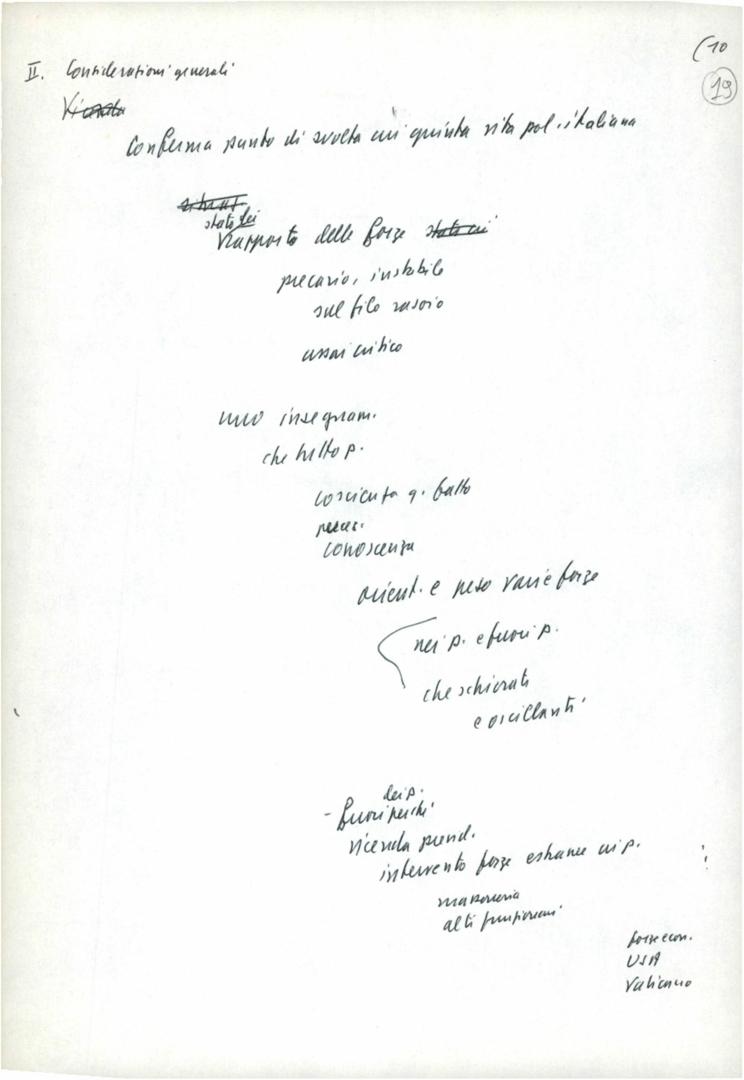 (10
19
II. Considerazioni generali
Vicenda
Conferma punto di svolta cui giunta vita pol. italiana
stato dei
Rapporto delle forze stato cui
precario, instabile
sul filo rasoio
assai critico
uno insegnam.
che tutto p.
coscienza q. fatto
conoscenza
orient. e peso varie forze
nei p. e fuori p.
che schierati
e oscillanti
dei p.
- fuori perché
vicenda presid.
intervento forze estranee ai p.
massoneria
alti funzionari
forze econ.
USA
Vaticano